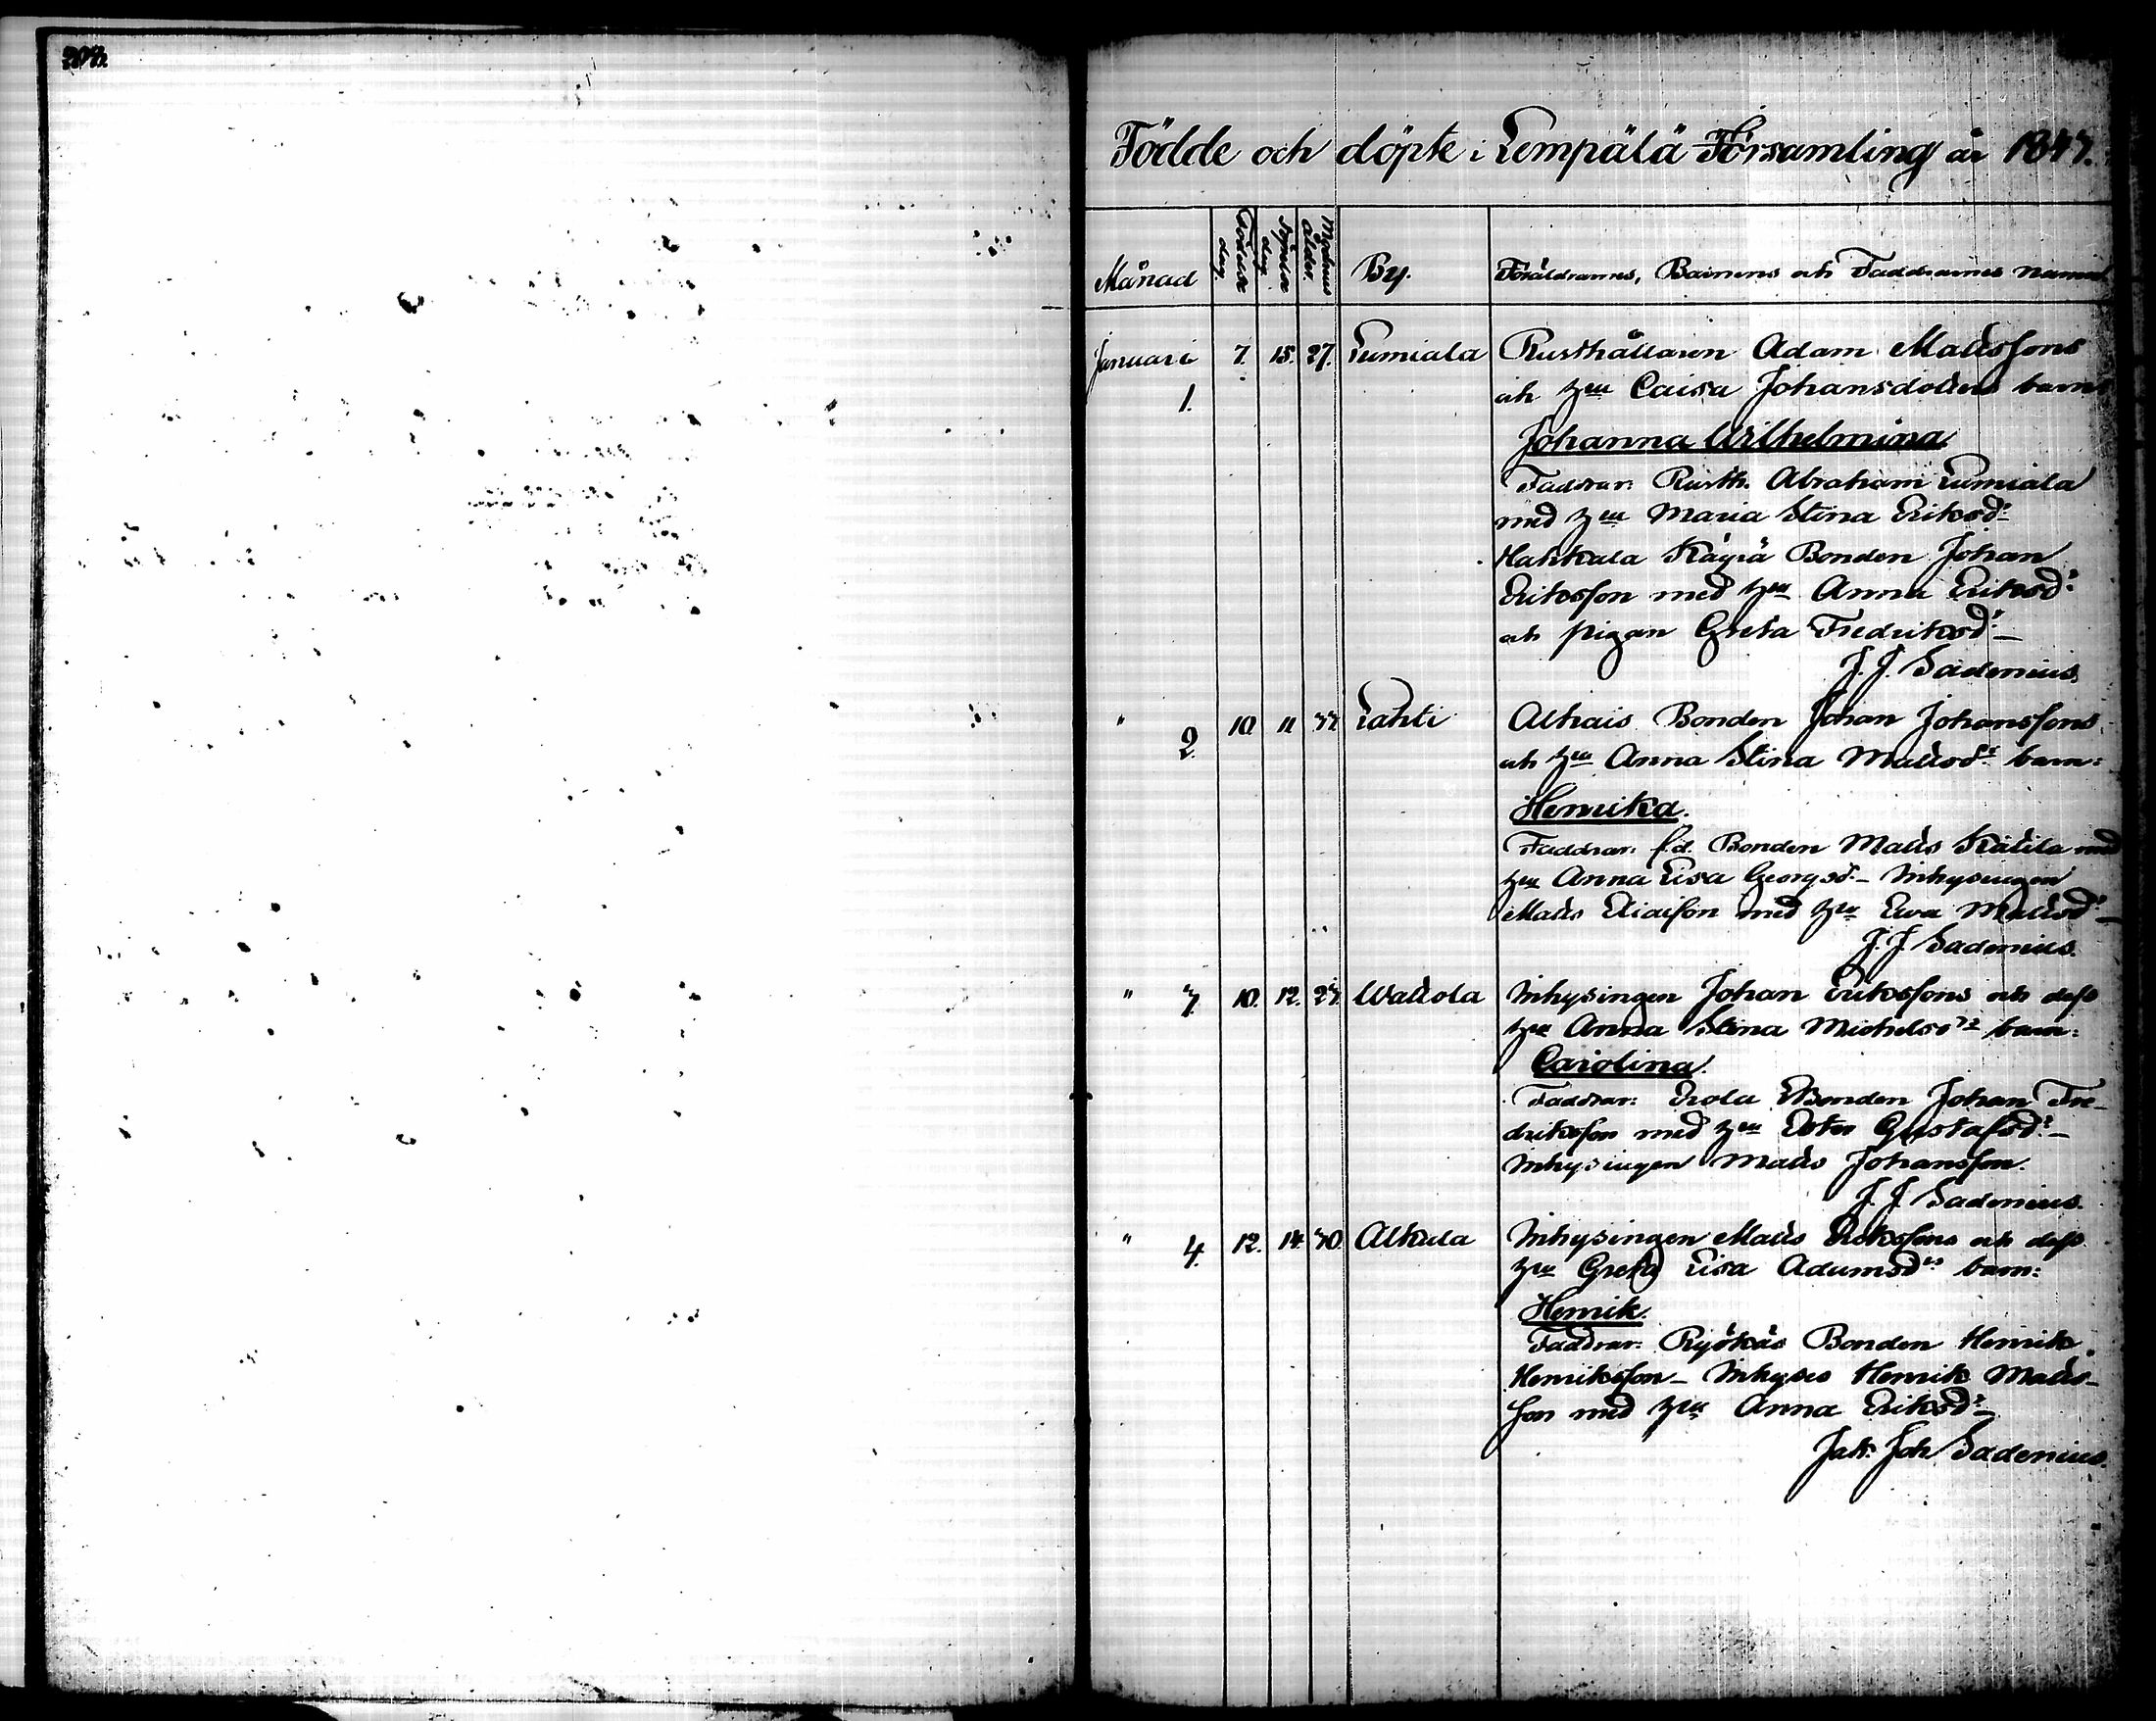 Födde och döpte i Lempälä Församling år 1843.
Månad Födelse dag. Kristnelse dag Modrens ålder. By. Föräldrarnes, Barnens och Faddrarnes namn
Januari 7. 15. 27. Lumiala Rusthållaren Adam Mattssons
1. och h:u Caisa Johansdotters barn
Johanna Wilhelmina
Faddrar: Rusth. Abraham Lumiala
med h:u Maria Stina Eriksd:r
Hakkala Käyrä Bonden Johan
Eriksson med h:u Anna Eriksd:r
och pigan Greta Fredriksd:r —
J. J. Sadenius.
" 10. 11. Lahti Bonden Johan Johanssons
2. och h:u Anna Stina Mattsd:rs barn:
Henrika.
Faddrar: f.d. Bonden Matts med
h:u Anna Lisa Georgsd:r — Inhysingen
Matts med h:u Ewa Mattsd:r —
J. J. Sadenius.
" 3. 10. 12. 23. Wattola Inhysingen Johan Erikssons och dess
h:u Anna Stina Michelsd:rs barn:
Carolina.
Faddrar: Erola Bonden Johan Fre-
driksson med h:u Ester Gustafsd:r —
Inhysingen Matts Johansson.
J. J. Sadenius.
" 4. 12. 14. 30. Alkula Inhysingen Matts Erikssons och dess
h:u Greta Lisa Adamsd:rs barn:
Henrik.
Faddrar: Ryökäs Bonden Henrik
Henriksson — Inhyses Henrik Matts-
son med h:u Anna Eriksd:r —
Jak. Joh. Sadenius.